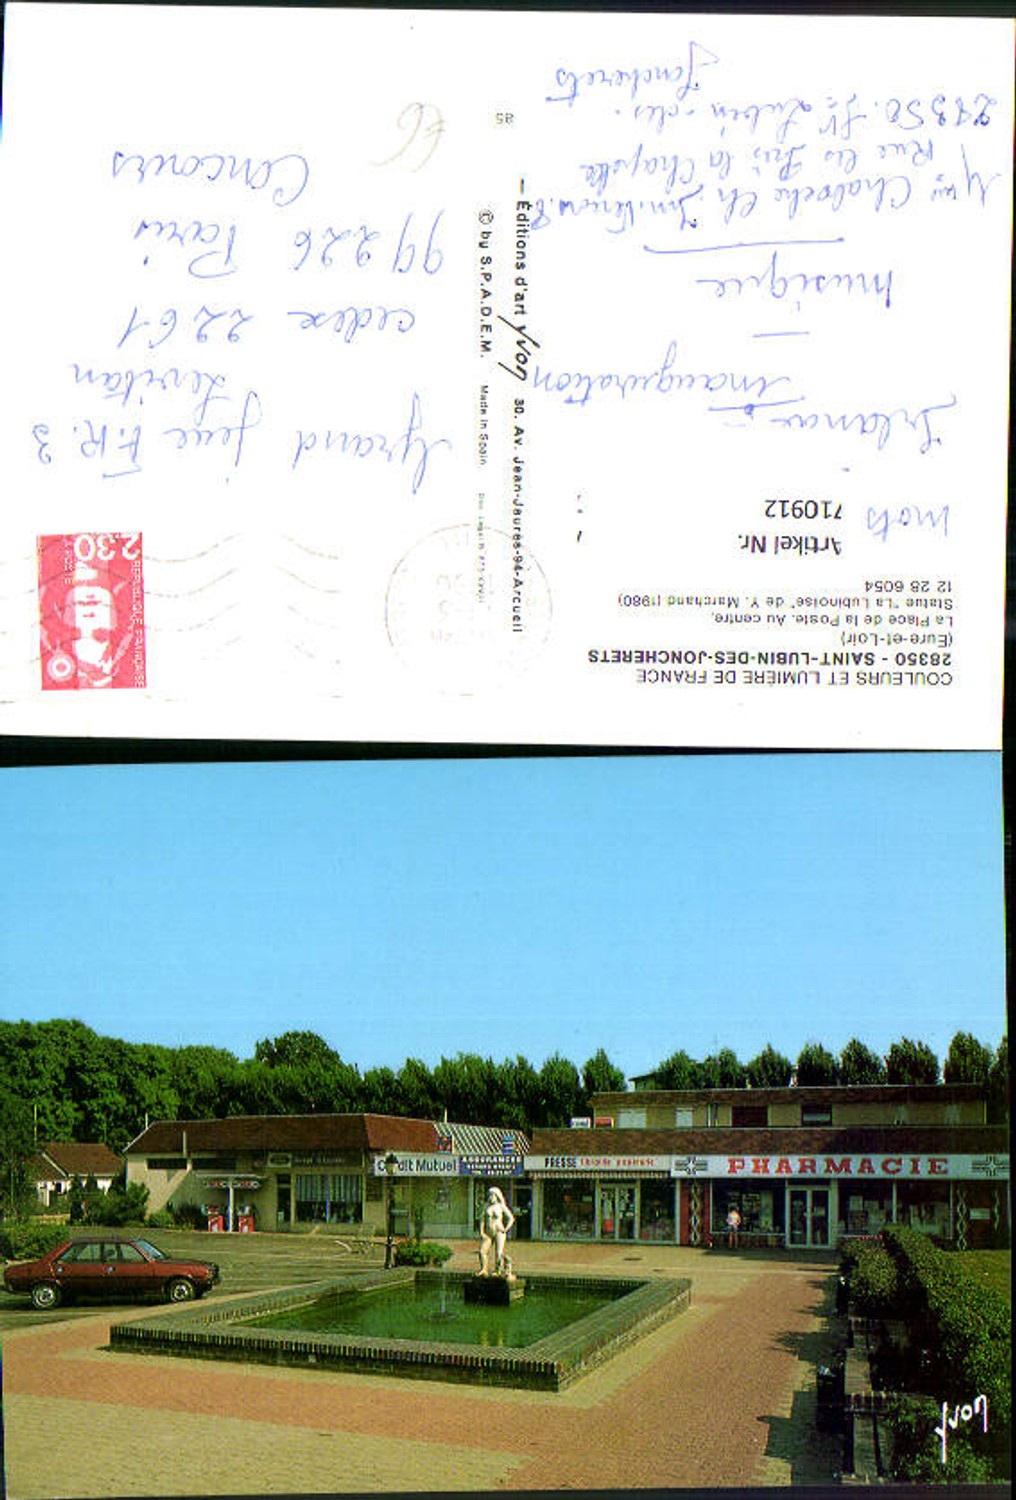 COULEURS ET LUMIÈRE DE FRANCE
28350 - SAINT-LUBIN-DES-JONCHERETS
(Eure-et-Loir)
La Place de la Poste. Au centre,
Statue "La Lubinoise" de Y. Marchand (1980)
12 28 6054
Artikel Nr.
710912
mots
inauguration
musique
Rue les Iris la Chapelle
28350. St Lubin des.
Joncherets
Éditions d'art Yvon 30, Av. Jean-Jaurès-94-Arcueil
© by S.P.A.D.E.M. Made in Spain
95
RÉPUBLIQUE FRANÇAISE
2,30
LA POSTE
Grand jeu F.R.3
Levitan
cedex 2261
99226 Paris
Concours
€6
Crédit Mutuel
PRESSE
PHARMACIE
Yvon